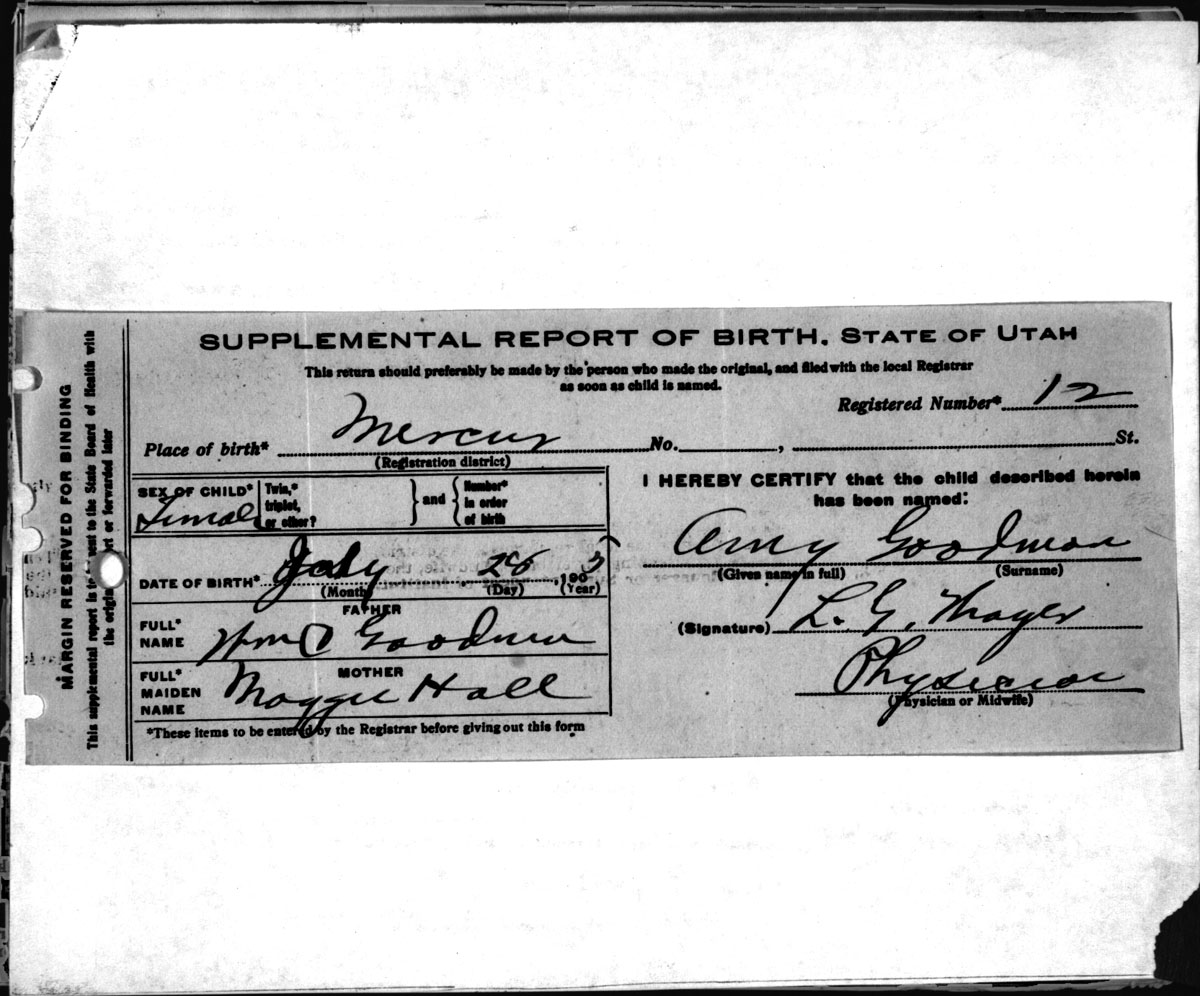 SUPPLEMENTAL REPORT OF BIRTH. STATE OF UTAH
This return should preferably be made by the person who made the original, and filed with the local Registrar
as soon as child is named.
Registered Number* 12
Place of birth* Mercur No. , St.
(Registration district)
SEX OF CHILD* Female
Twin,* triplet, or other?
} and {
Number* in order of birth
DATE OF BIRTH* July 26, 1905
(Month) (Day) (Year)
FATHER
FULL* NAME Wm C Goodman
MOTHER
FULL* MAIDEN NAME Maggie Hall
*These items to be entered by the Registrar before giving out this form
I HEREBY CERTIFY that the child described herein
has been named:
Amy Goodman
(Given name in full) (Surname)
(Signature) L. G. Thayer
Physician
(Physician or Midwife)
MARGIN RESERVED FOR BINDING
This supplemental report is to sent to the State Board of Health with
the original or forwarded later